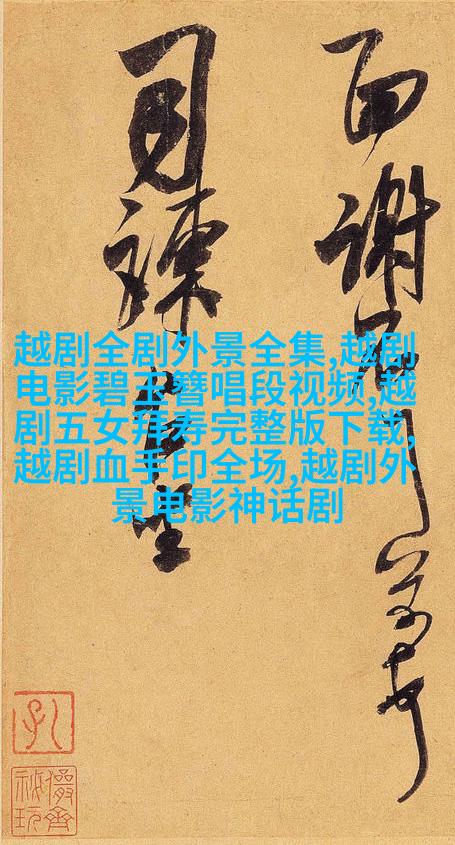 面謝
司諫
越剧全剧外景全集,越剧
电影碧玉簪唱段视频,越
剧五女拜寿完整版下载,
越剧血手印全场,越剧外
景电影神话剧
儼齋秘玩